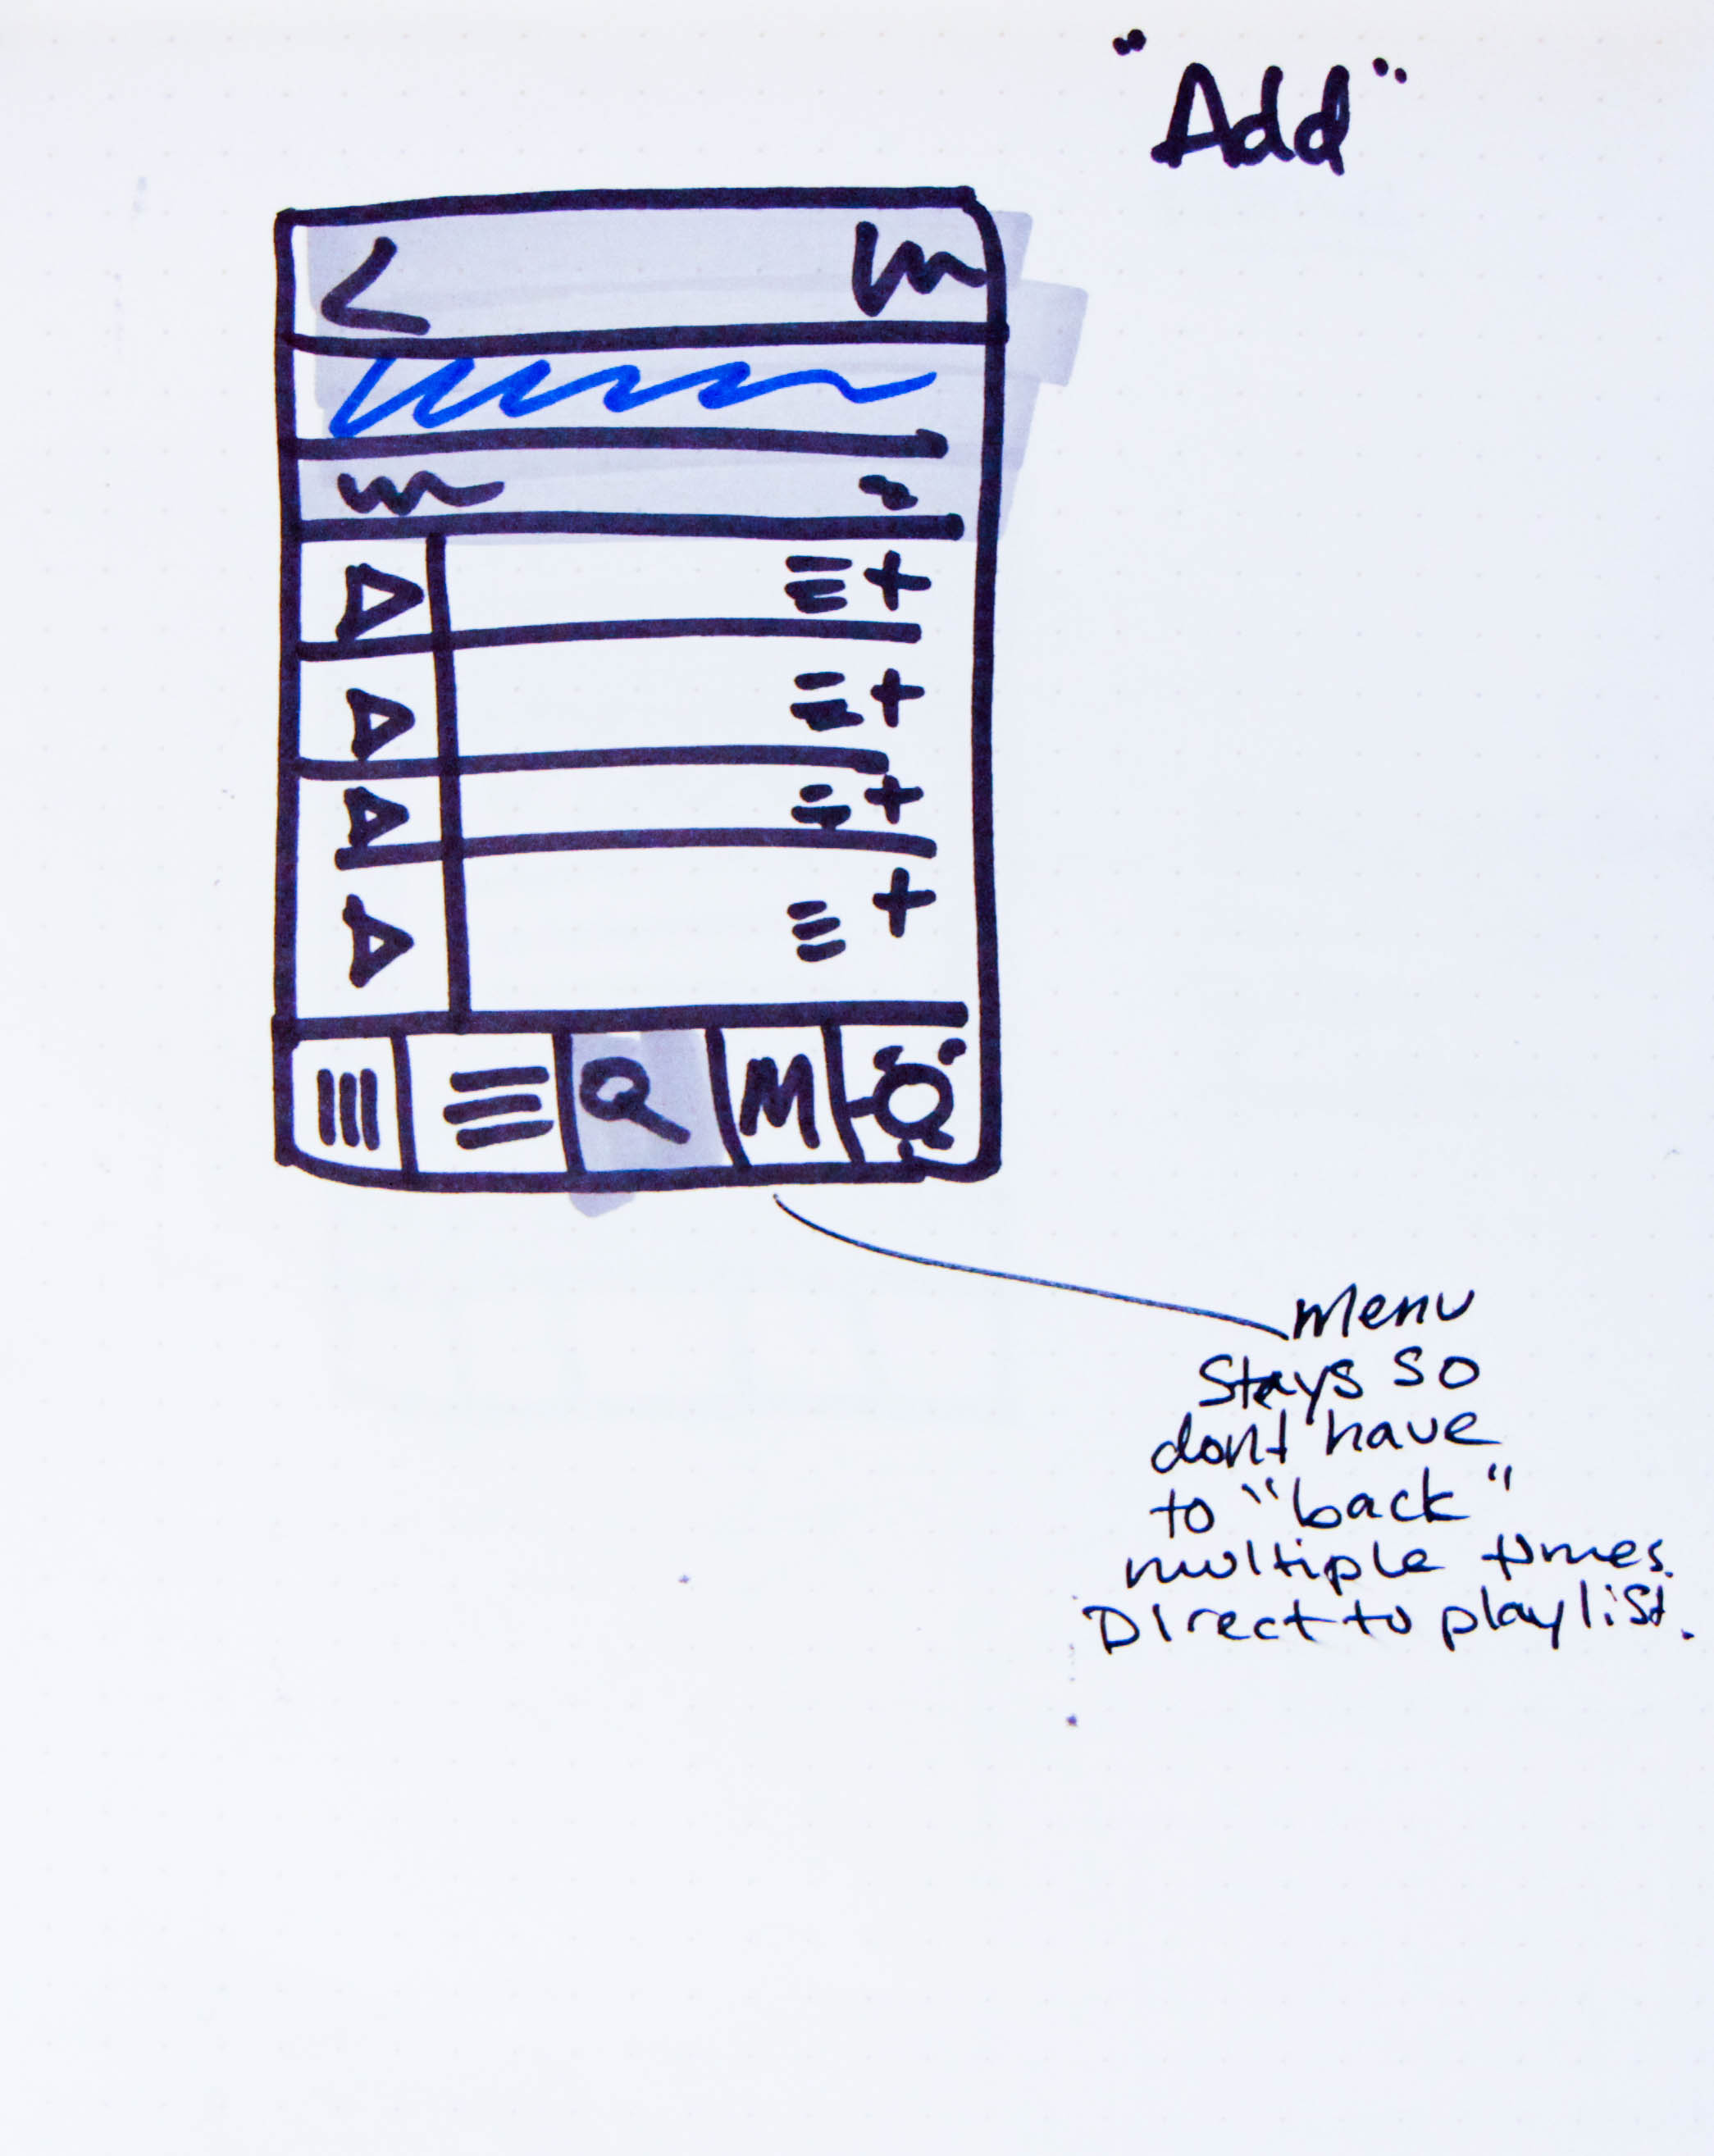 "Add"
M
menu
Stays so
dont have
to "back"
multiple times.
Direct to playlist.